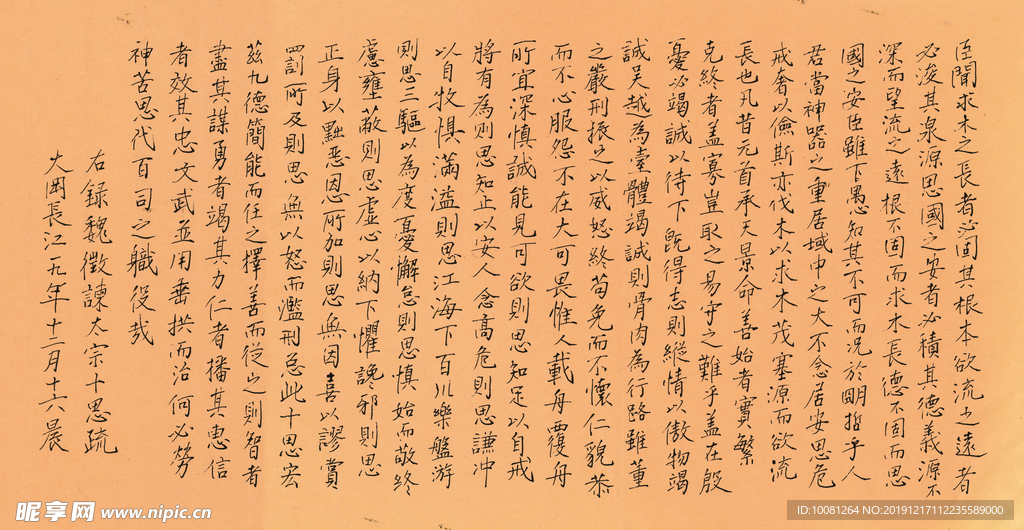 臣聞求木之長者必固其根本欲流之遠者
必浚其泉源思國之安者必積其德義源不
深而望流之遠根不固而求木長德不固而思
國之安臣雖下愚心知其不可而況於明哲乎人
君當神器之重居域中之大不念居安思危
戒奢以儉斯亦伐木以求木茂塞源而欲流
長也凡昔元首承天景命善始者實繁
克終者蓋寡豈取之易守之難乎蓋在殷
憂必竭誠以待下既得志則縱情以傲物竭
誠吴越為臺體竭誠則骨肉為行路雖董
之嚴刑振之以威怒終苟免而不懷仁貌恭
而不心服怨不在大可畏惟人載舟覆舟
所宜深慎誠能見可欲則思知足以自戒
將有為則思知止以安人念高危則思謙冲
以自牧惧滿溢則思江海下百川樂盤游
則思三驅以為度憂懈怠則思慎始而敬終
慮壅蔽則思虛心以納下懼讒邪則思
正身以黜惡恩所加則思無因喜以謬賞
罰所及則思無以怒而濫刑总此十思宏
茲九德簡能而任之擇善而從之則智者
盡其謀勇者竭其力仁者播其惠信
者效其忠文武並用垂拱而治何必勞
神苦思代百司之職役哉
右録魏徵諫太宗十思疏
大岡長江一九年十二月十六晨
昵享网 www.nipic.cn
ID:10081264 NO:20191217112235589000